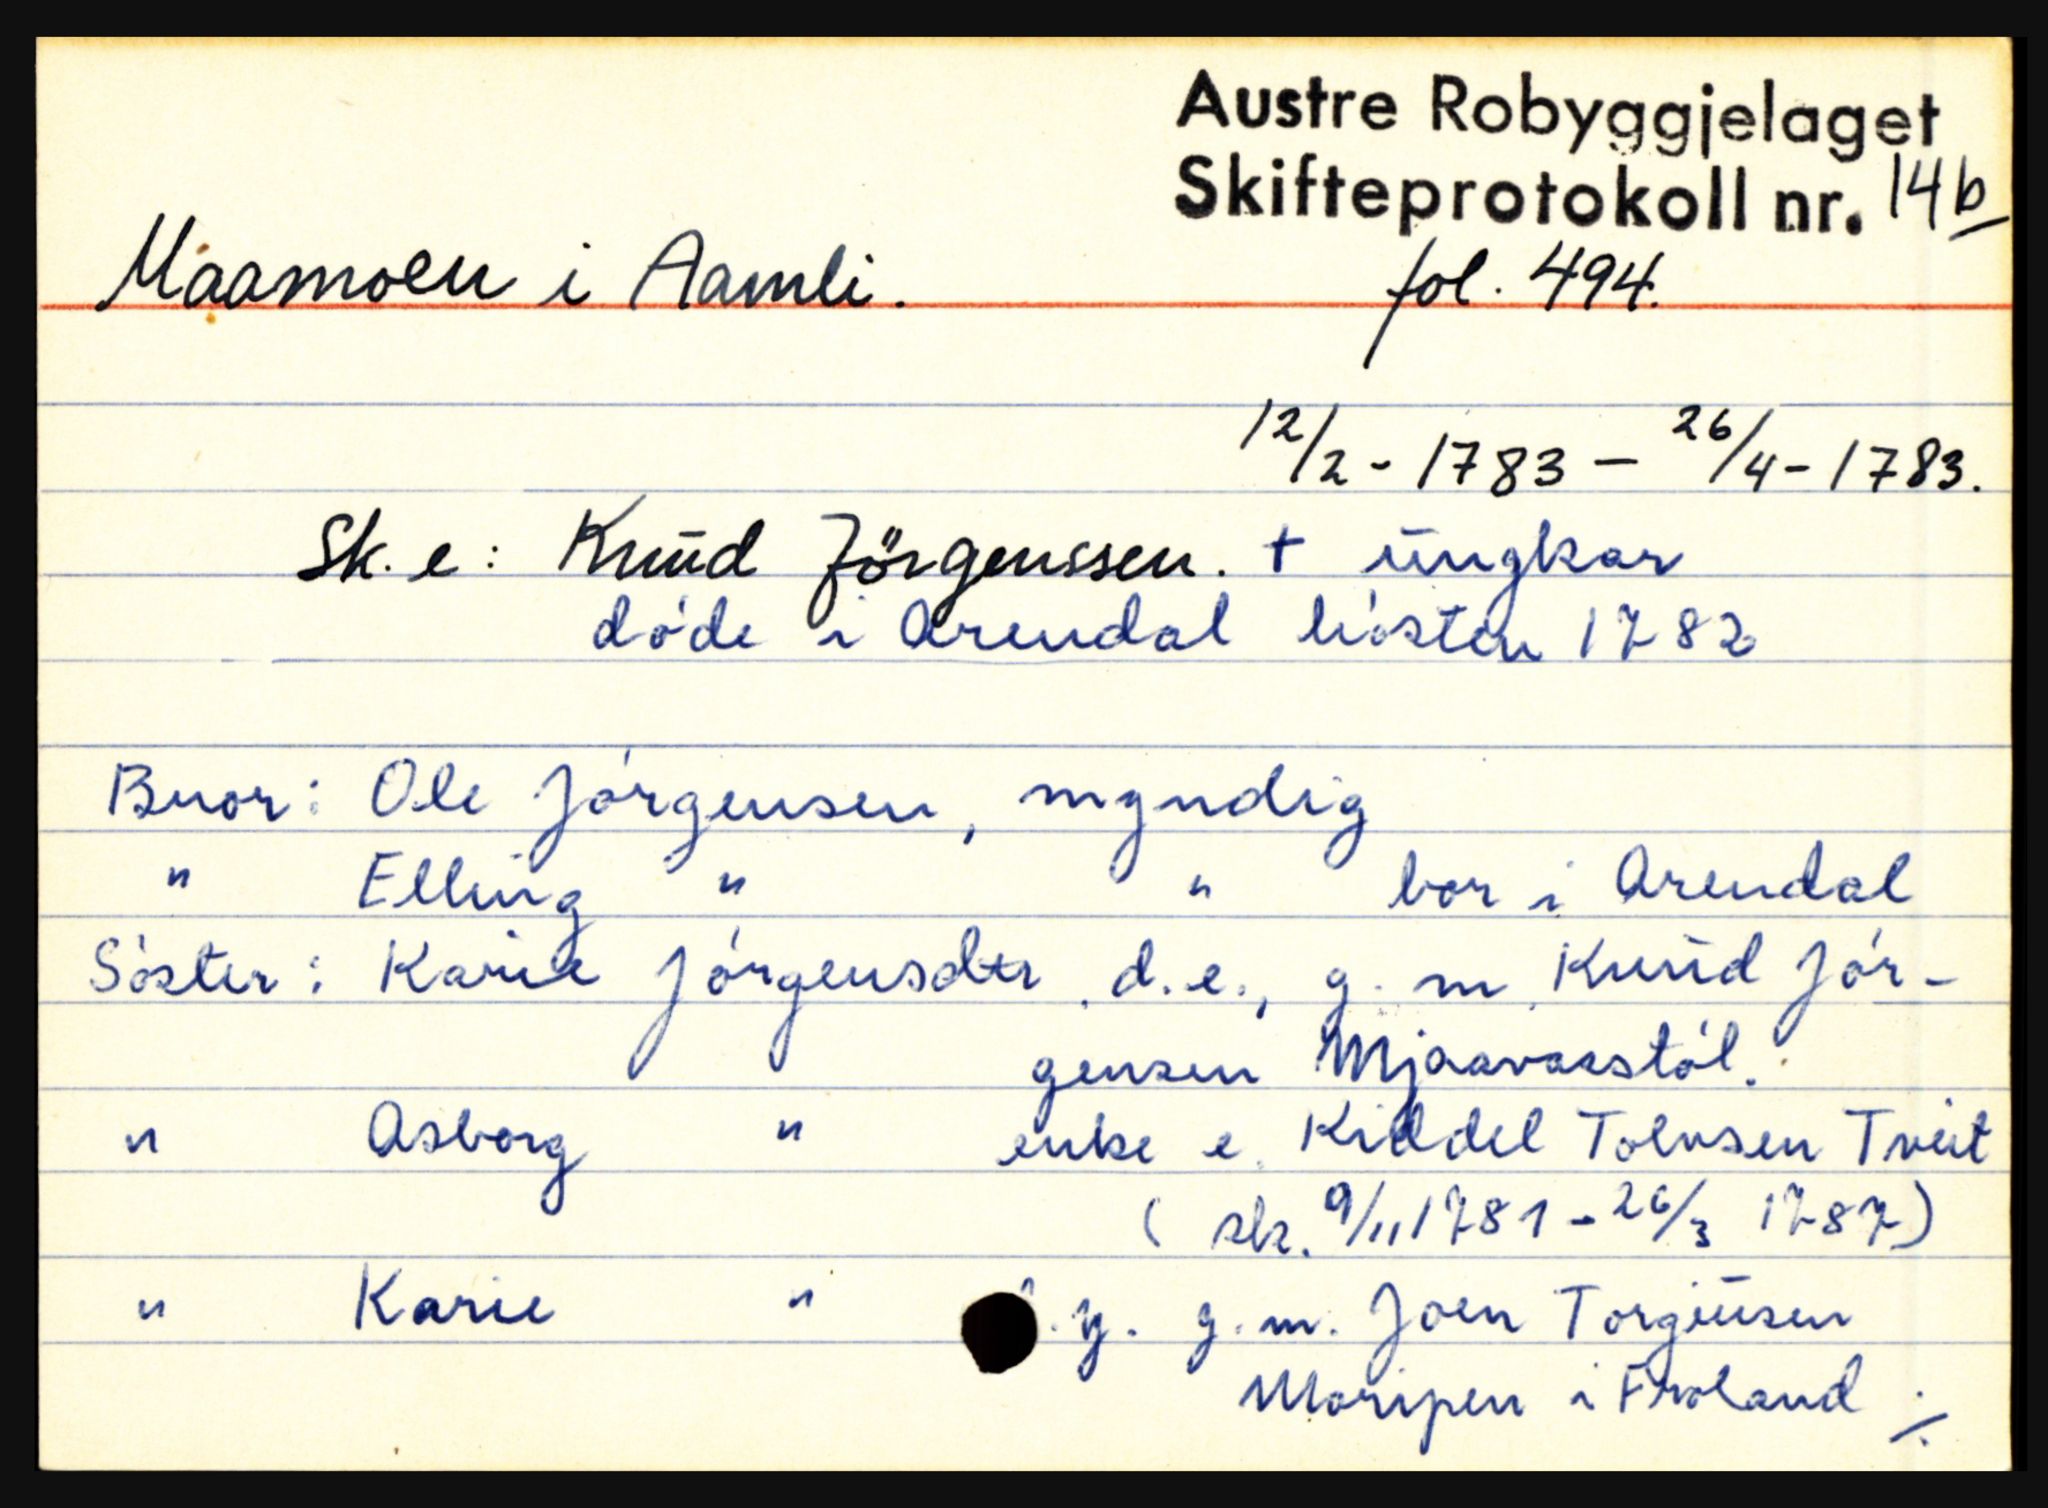 Austre Robyggjelaget
Skifteprotokoll nr. 14b
Maamoen i Aamli. fol. 494.
12/2 - 1783 — 26/4 - 1783.
Sk. e: Knud Jörgenssen. + ungkar
døde i Arendal høsten 1782
Bror: Ole Jørgensen, myndig
" Elling " " bor i Arendal
Søster: Karie Jørgensdtr d.e., g. m. Knud Jør-
gensen Mjaavasstøl.
" Asborg " enke e. Kiddel Tolvsen Tveit
( sk. 9/11 1781 - 26/3 1787)
" Karie " y. g. m. Joen Torgiusen
Moripen i Froland ./.